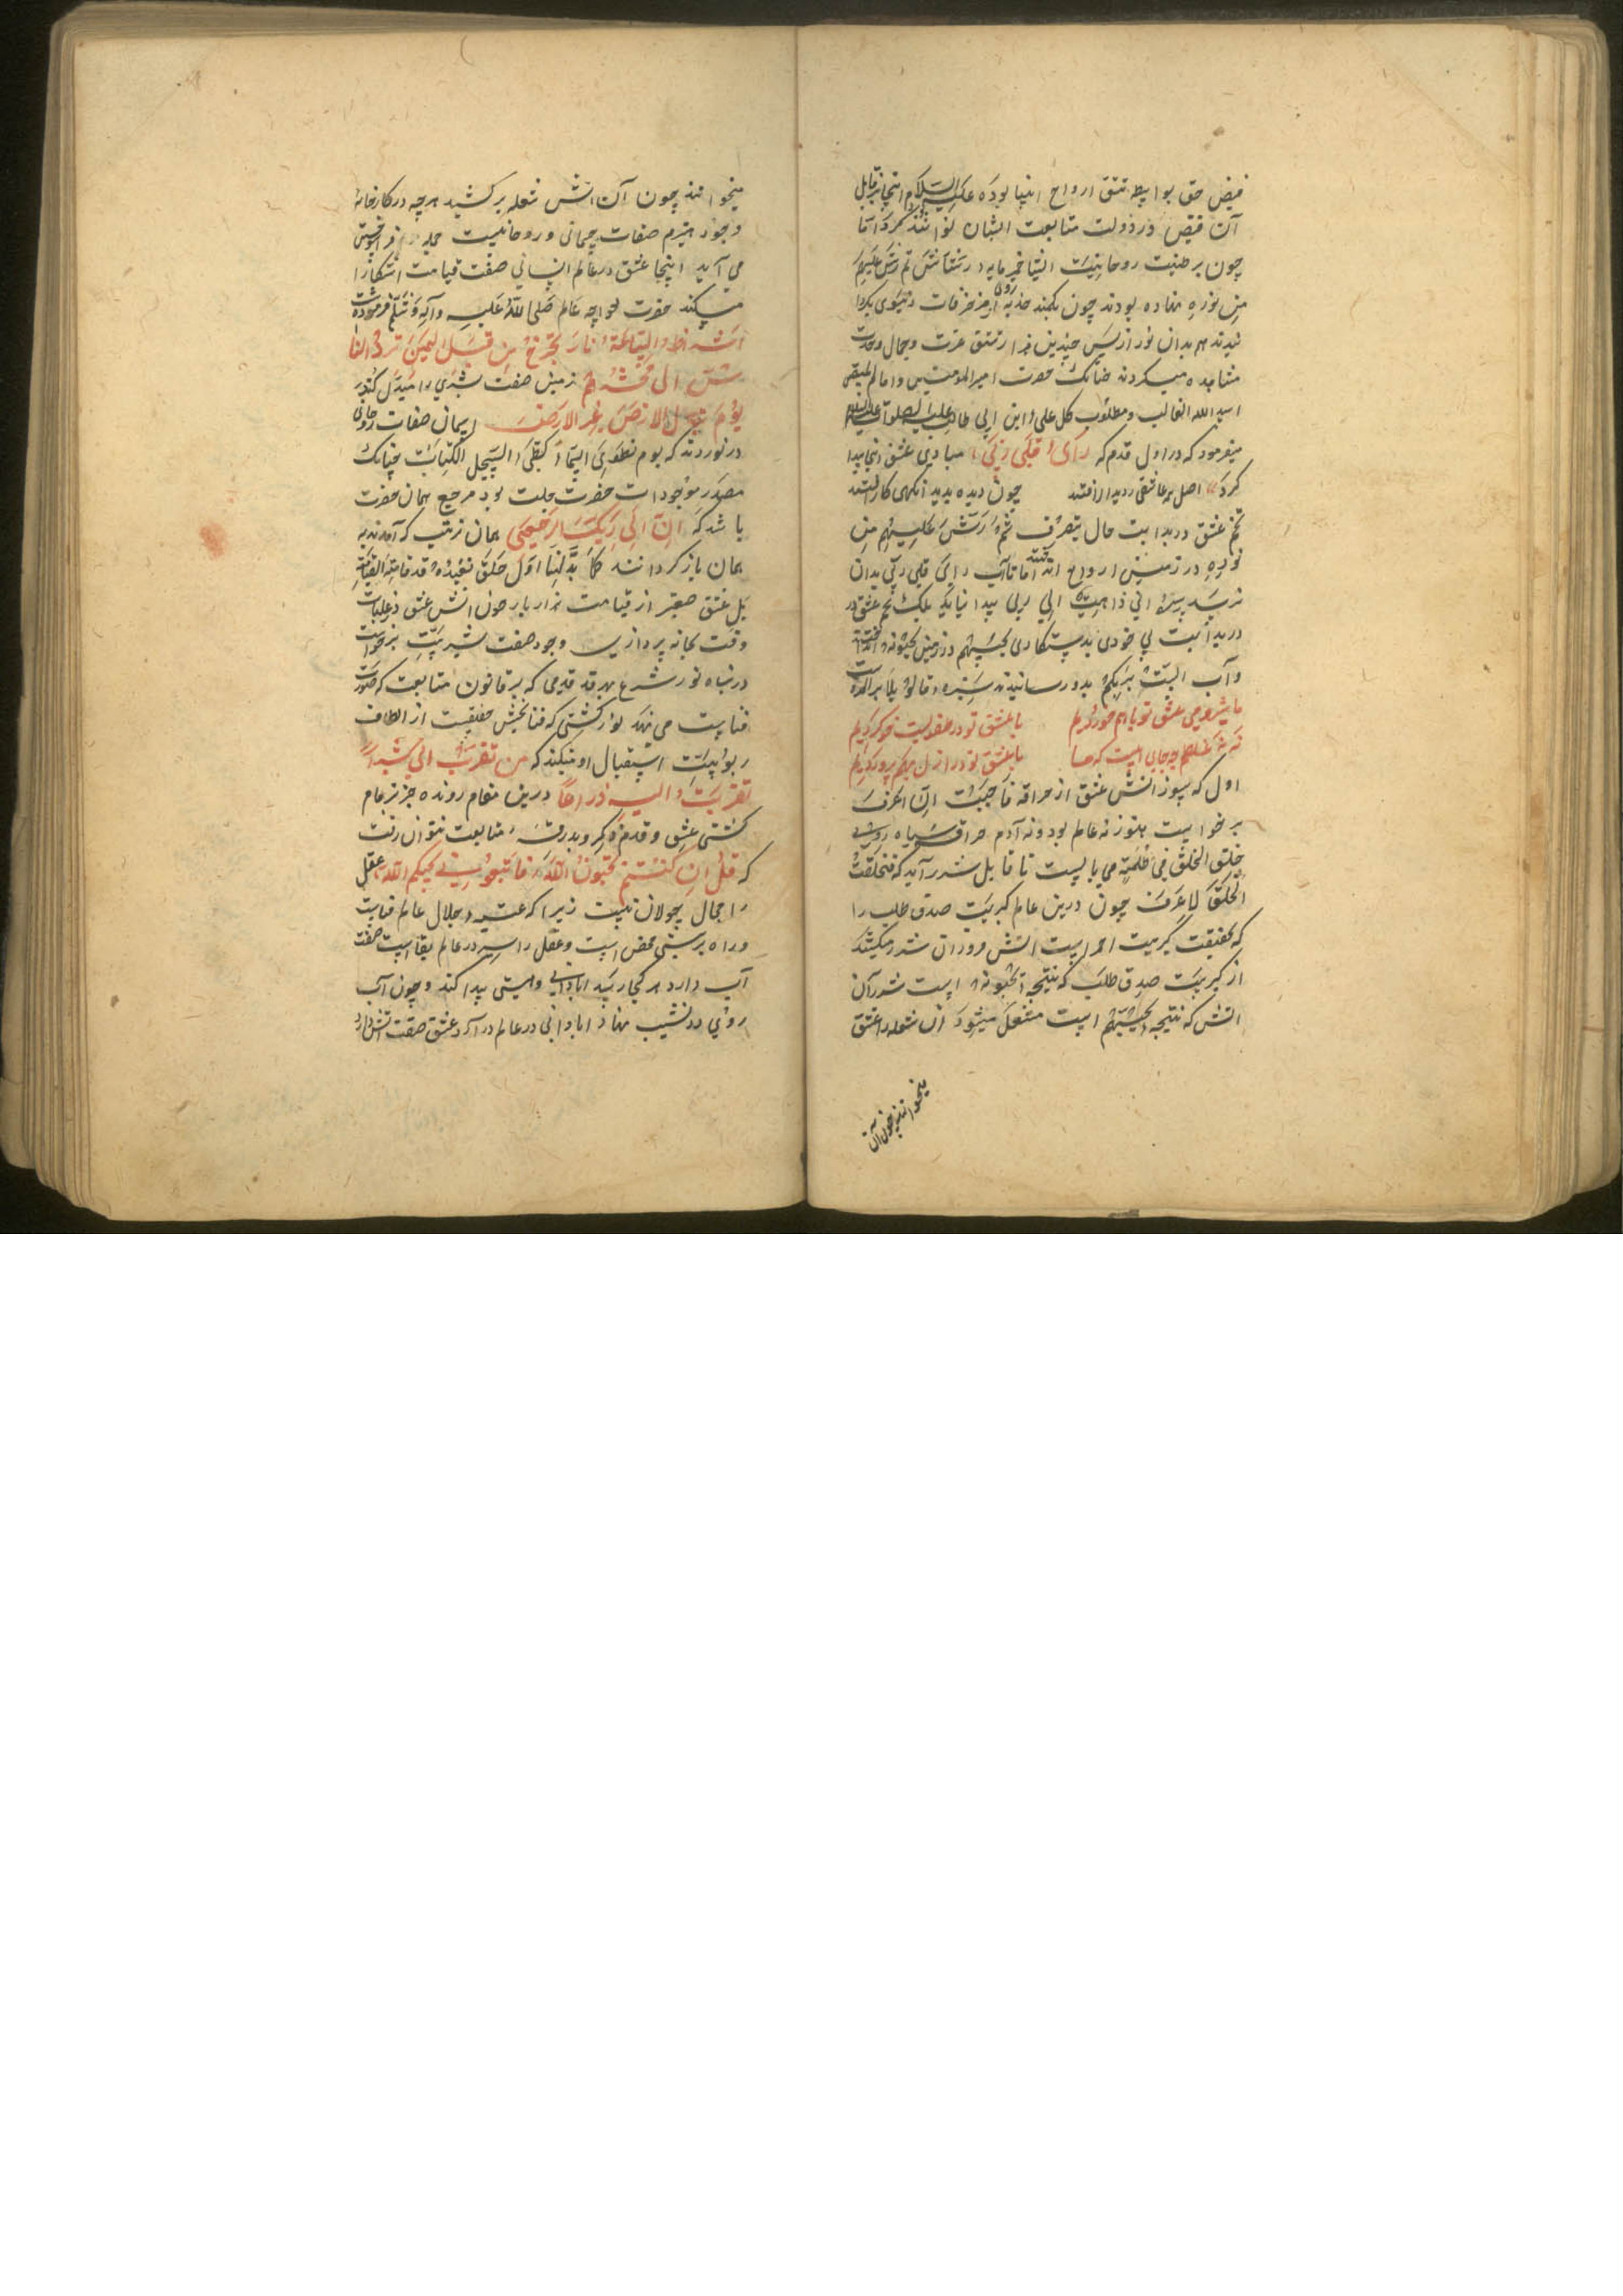 فیض حق بواسطه تتق ارواح انبیا بوده علیهم السلام اینجا نیز قابل
آن فیض در دولت متابعت ایشان توانند کرد اما
چون بر طینت روحانیت ایشان خمیر مایه رشاش ثم رش علیهم
من نوره نهاده بودند چون بکمند جذبه روی از مزخرفات دنیوی بگردا
نیدند هم بدان نور از پس چندین هزار تتق عزت و جمال وحدت
مشاهده میکردند چنانک حضرت امیر المؤمنین و امام المتقین
اسد الله الغالب و مطلوب کل طالب علی ابن ابی طالب علیه الصلوات و السلام
میفرمود که در اول قدم که رای قلبی ربی مبادی عشق اینجا پیدا
کرد اصل همه عاشقی ز دیدار افتد چون دیده بدید آنگهی کار افتد
تخم عشق در بدایت حال بتصرف ثم رش علیهم من
نوره در زمین ارواح انداختند اما تا آب رای قلبی ربی بدان
نرسید سبزه انی ذاهب الی ربی پیدا نیامد بلک تخم عشق در
در بدایت بی خودی بدستکاری یحبهم در زمین یحبونه انداختند
و آب الست بربکم بدو رسانیدند سبزه قالوا بلی برآمد
ما شیر و می عشق تو با هم خوردیم با عشق تو در طفولیت خو کردیم
نه نه غلطم چه جای اینست که ما با عشق تو در ازل بهم پروردیم
اول که سوز آتش عشق از حراقه فاحببت ان اعرف
برخواست هنوز نه عالم بود و نه آدم حراقه سیاه روی
خلق الخلق فی ظلمة می بایست تا قابل شرر آید که فخلقت
الخلق لاعرف چون درین عالم کبریت صدق طلب را
که بحقیقت کبریت احمر است آتش فروزان شرر میکشد
از کبریت صدق طلب که نتیجه یحبونه است شرر آن
آتش که نتیجه یحبهم است مشتعل میشود آن شعله را عشق
میخوانند چون آن
میخوانند چون آن آتش شعله برکشید هر چه در کارخانه
وجود هیزم صفات جسمانی و روحانیت جمله
می آید اینجا عشق در عالم انسانی صفت قیامت آشکارا
میکند حضرت خواجه عالم صلی الله علیه وآله وسلم فرموده است
اشراط الساعة نار یخرج من قبل الیمن تطرد النا
س الی محشرهم زمین صفت بشری را مبدل کند
یوم تبدل الارض غیر الارض اسمان صفات روحانی
در نوردند که یوم نطوی السماء کطی السجل للکتب چنانک
مصدر موجودات حضرت جلت بود مرجع همان حضرت
باشد که ان الی ربک الرجعی همان ترتیب که آمدند به
همان باز گردانند کما بدأنا اول خلق نعیده قد قامت القیامة
بل عشق صغیر از قیامت ندارد بار چون آتش عشق در غلبات
وقت بخانه پردازی وجود صفت بشریت برخواست
در پناه نور شرع هر قدمی که بر قانون متابعت که صورت
فناست می نهد نوازشی که فنا بخش حقیقیست از الطاف
ربوبیت استقبال او میکند که من تقرب الی شبرا
تقربت الیه ذراعا درین مقام رونده جز بزمام
کششی عشق و قدم ذکر و بدرقه متابعت نتوان رفت
که قل ان کنتم تحبون الله فاتبعونی یحببکم الله عقل
را مجال جولان نیست زیرا که عتبه جلال عالم فناست
وراه بر نیستی محض است و عقل را سیر در عالم بقاست صفت
آب دارد هر کجا رسد ابادانی و هستی پیدا کند و چون آب
روی در نشیب نهاد ابادانی در عالم درآورد عشق صفت آتش دارد